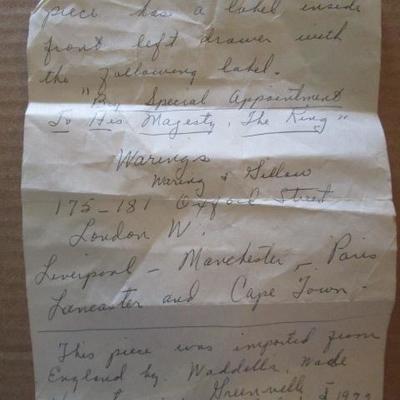 piece has a label inside
front left drawer with
the following label.
"By Special Appointment
To His Magesty, The King"
Warings
Waring & Gillow
175-181 Oxford Street
London W.
Liverpool - Manchester - Paris
Lancaster and Cape Town -
This piece was imported from
England by Waddells,